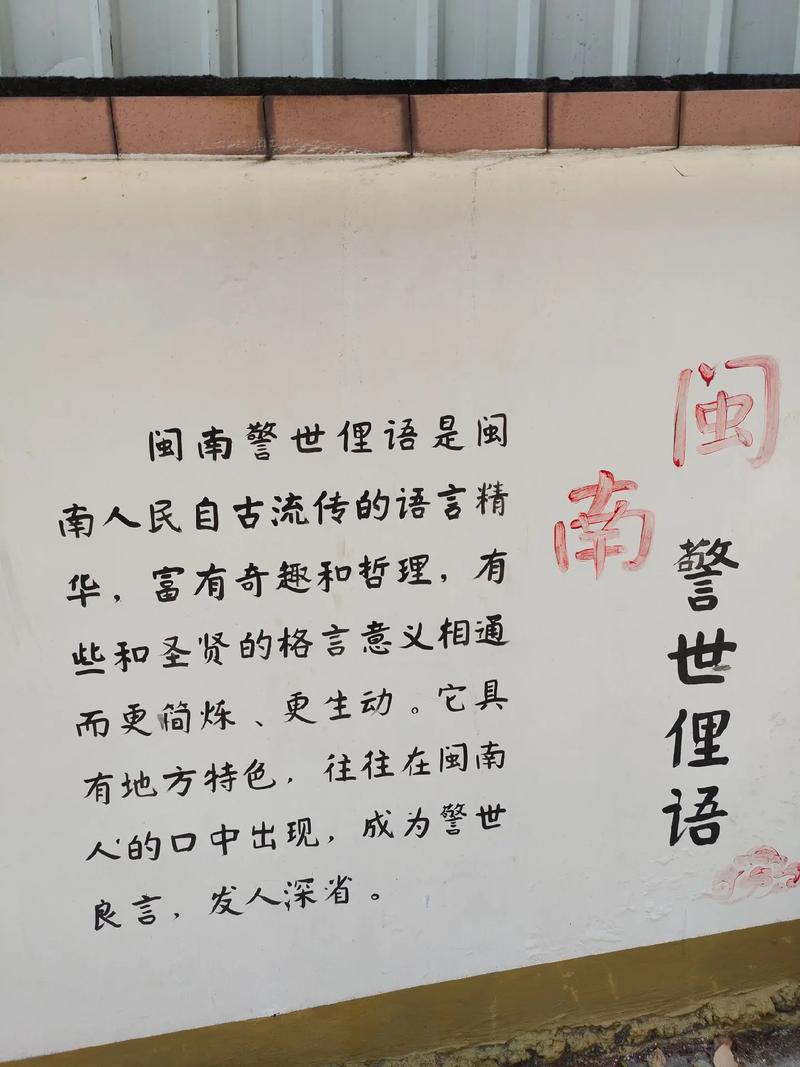 闽南
警世俚语
闽南警世俚语是闽
南人民自古流传的语言精
华，富有奇趣和哲理，有
些和圣贤的格言意义相通
而更简炼、更生动。它具
有地方特色，往往在闽南
人的口中出现，成为警世
良言，发人深省。